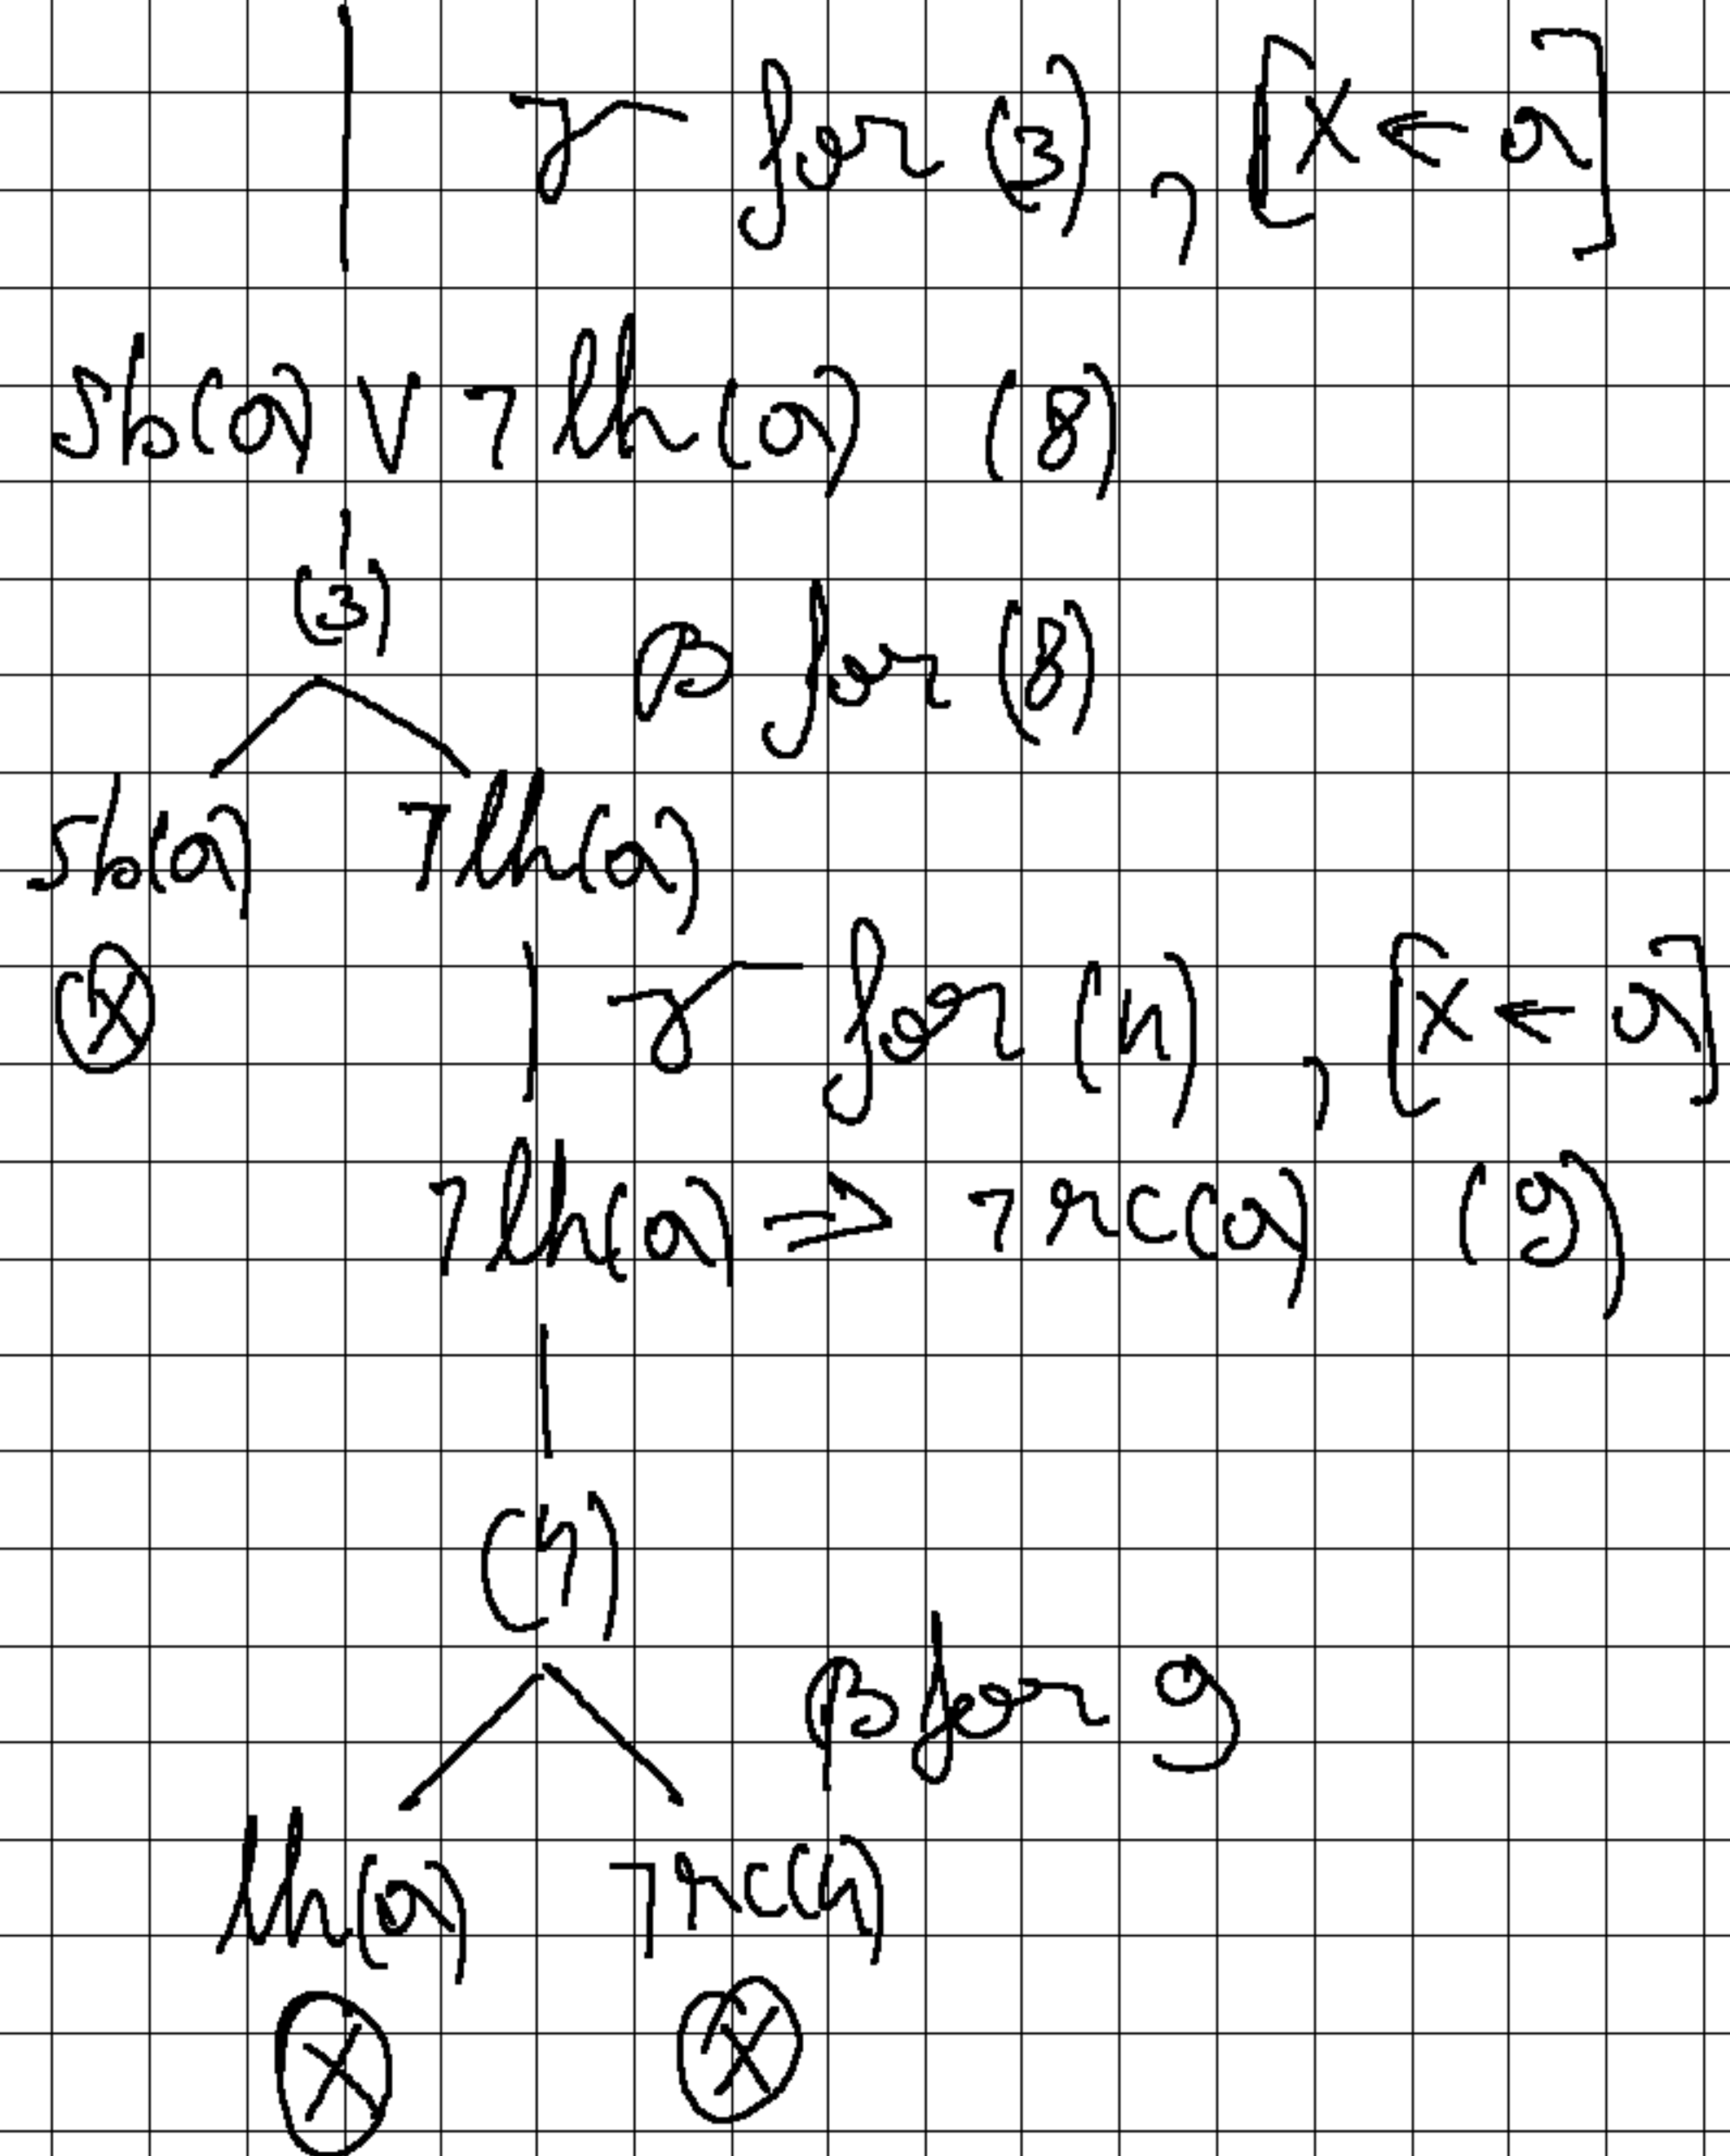 γ for (3), [x ← a]
sb(a) ∨ ¬lh(a) (8)
(3)
β for (8)
sb(a) ¬lh(a)
γ for (4), [x ← a]
¬lh(a) ⇒ ¬rc(a) (9)
(4)
β for 9
lh(a) ¬rc(a)